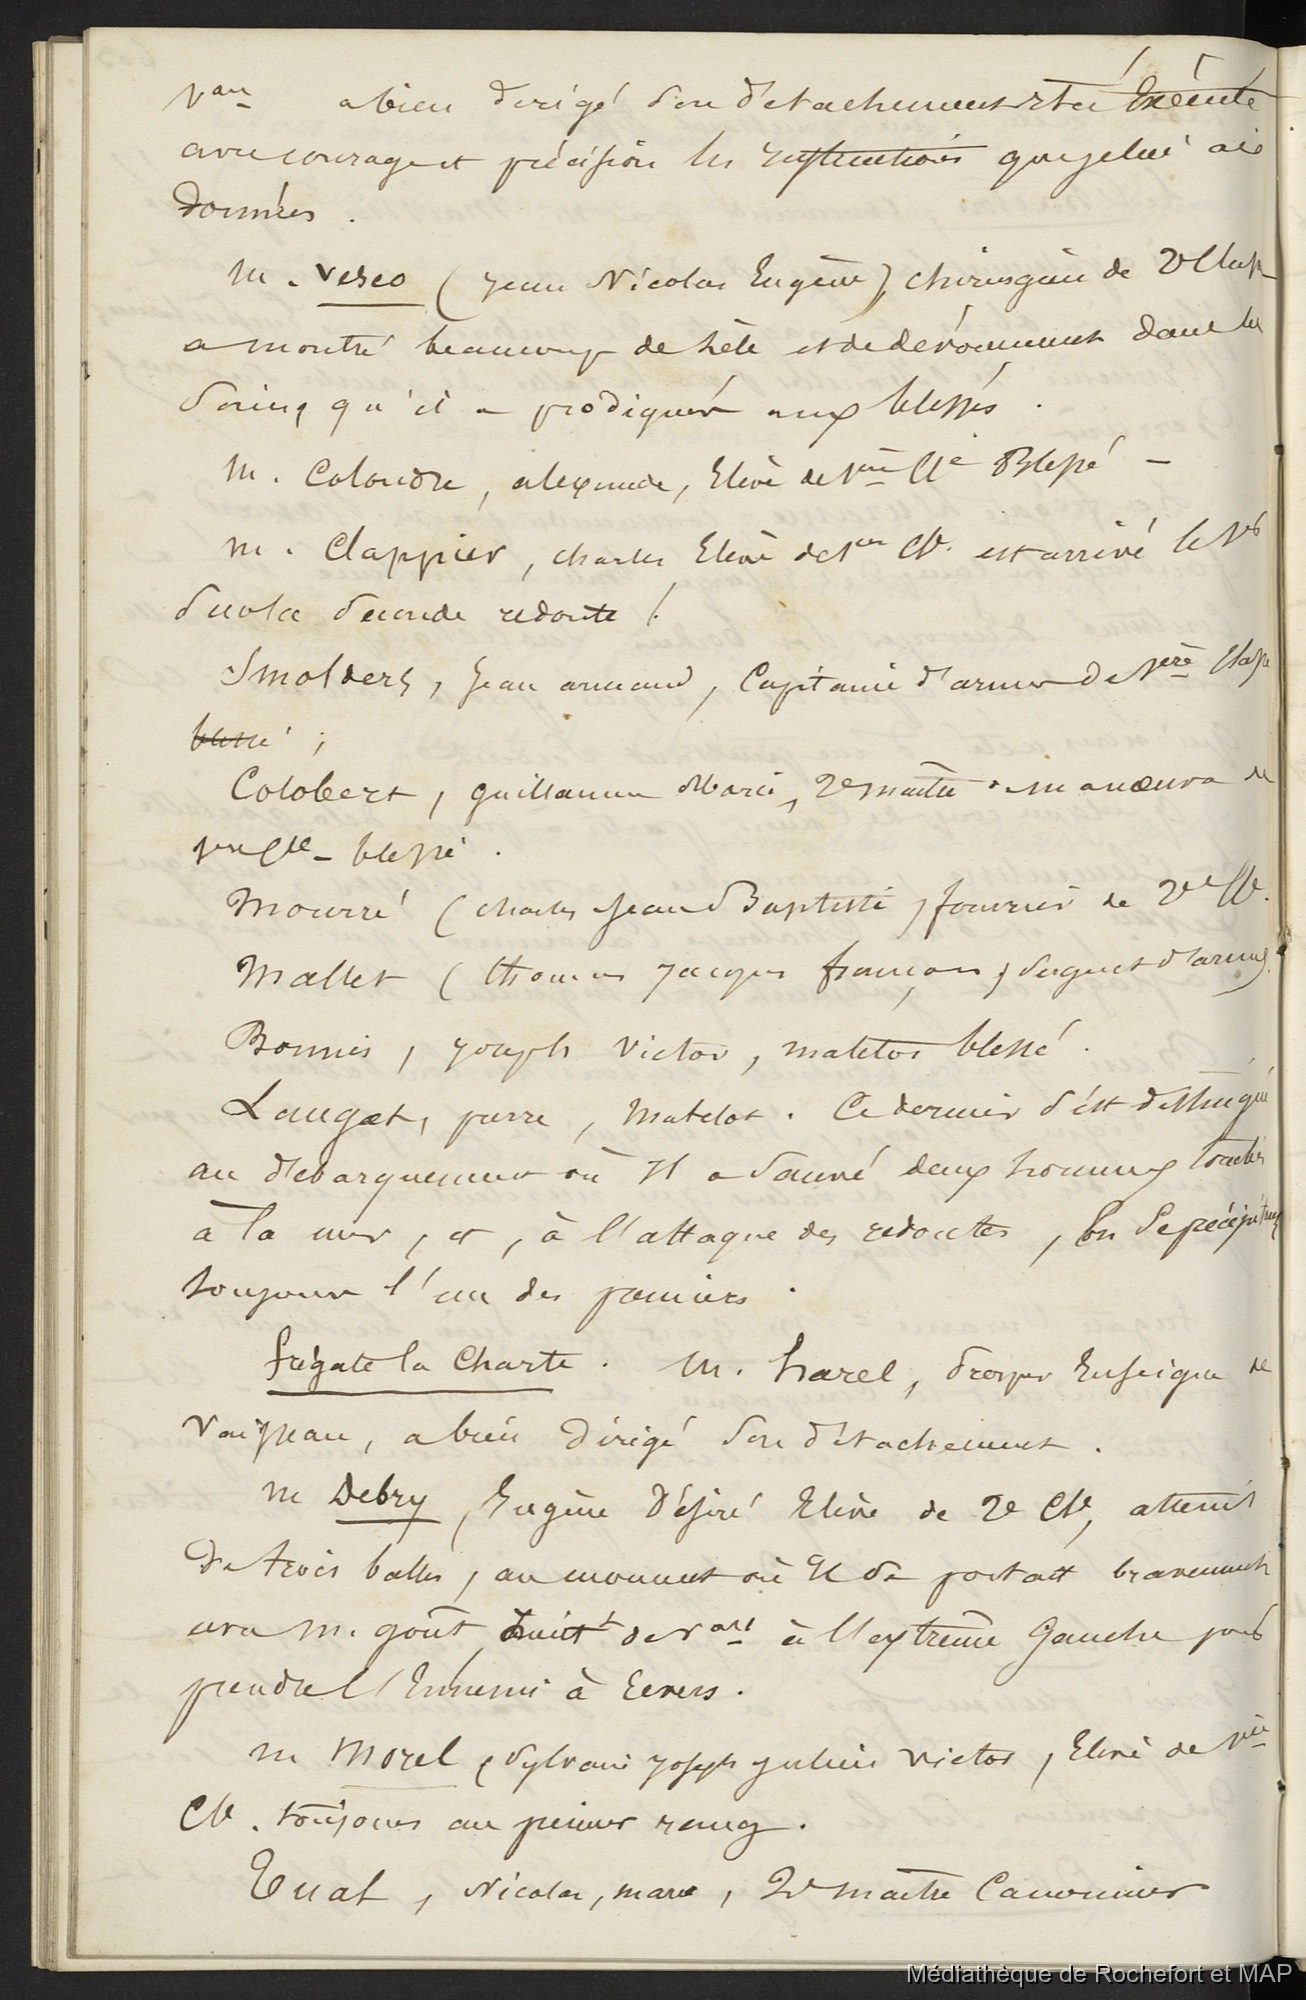 vau a bien dirigé son détachement et a exécuté
avec courage et précision les instructions que je lui ai
données.
M. Vesco (Jean Nicolas Eugène), chirurgien de 2e Classe
a montré beaucoup de zèle et de dévouement dans les
soins qu'il a prodigués aux blessés.
M. Colondre, alexandre, Elève de 1ère Cle Blessé -
M. Clappier, Charles Elève de 1ère Cle. est arrivé le 1er
sur la seconde redoute !
Smolders, Jean armand, Capitaine d'armes de 1ère Classe
blessé ;
Colobert, guillaume Marie, 2e maître de manoeuvre de
1ère Cle - blessé.
Mourré (Charles Jean Baptiste) fourrier de 2e Cle.
Mallet (thomas Jacques françois) sergent d'armes.
Bonnis, Joseph Victor, matelot blessé.
Lauget, pierre, Matelot. Ce dernier s'est distingué
au débarquement où Il a sauvé deux hommes tombés
à la mer, et, à l'attaque des redoutes, En se précipitant
toujours l'un des premiers.
frégate la Charte. M. harel, prosper Enseigne de
vaisseau, a bien dirigé son détachement.
M Debry, Eugène Désiré Elève de 2e Cle, atteint
De trois balles, au moment où Il se portait bravement
avec M. goût, Lieutt de vau à l'extrême Gauche pour
prendre l'Ennemi à revers.
M Morel (Sylvain Joseph Julien Victor, Elève de 1ère
Cle. toujours au premier rang.
Tual, Nicolas, marie, 2e maître Canonnier
Médiathèque de Rochefort et MAP